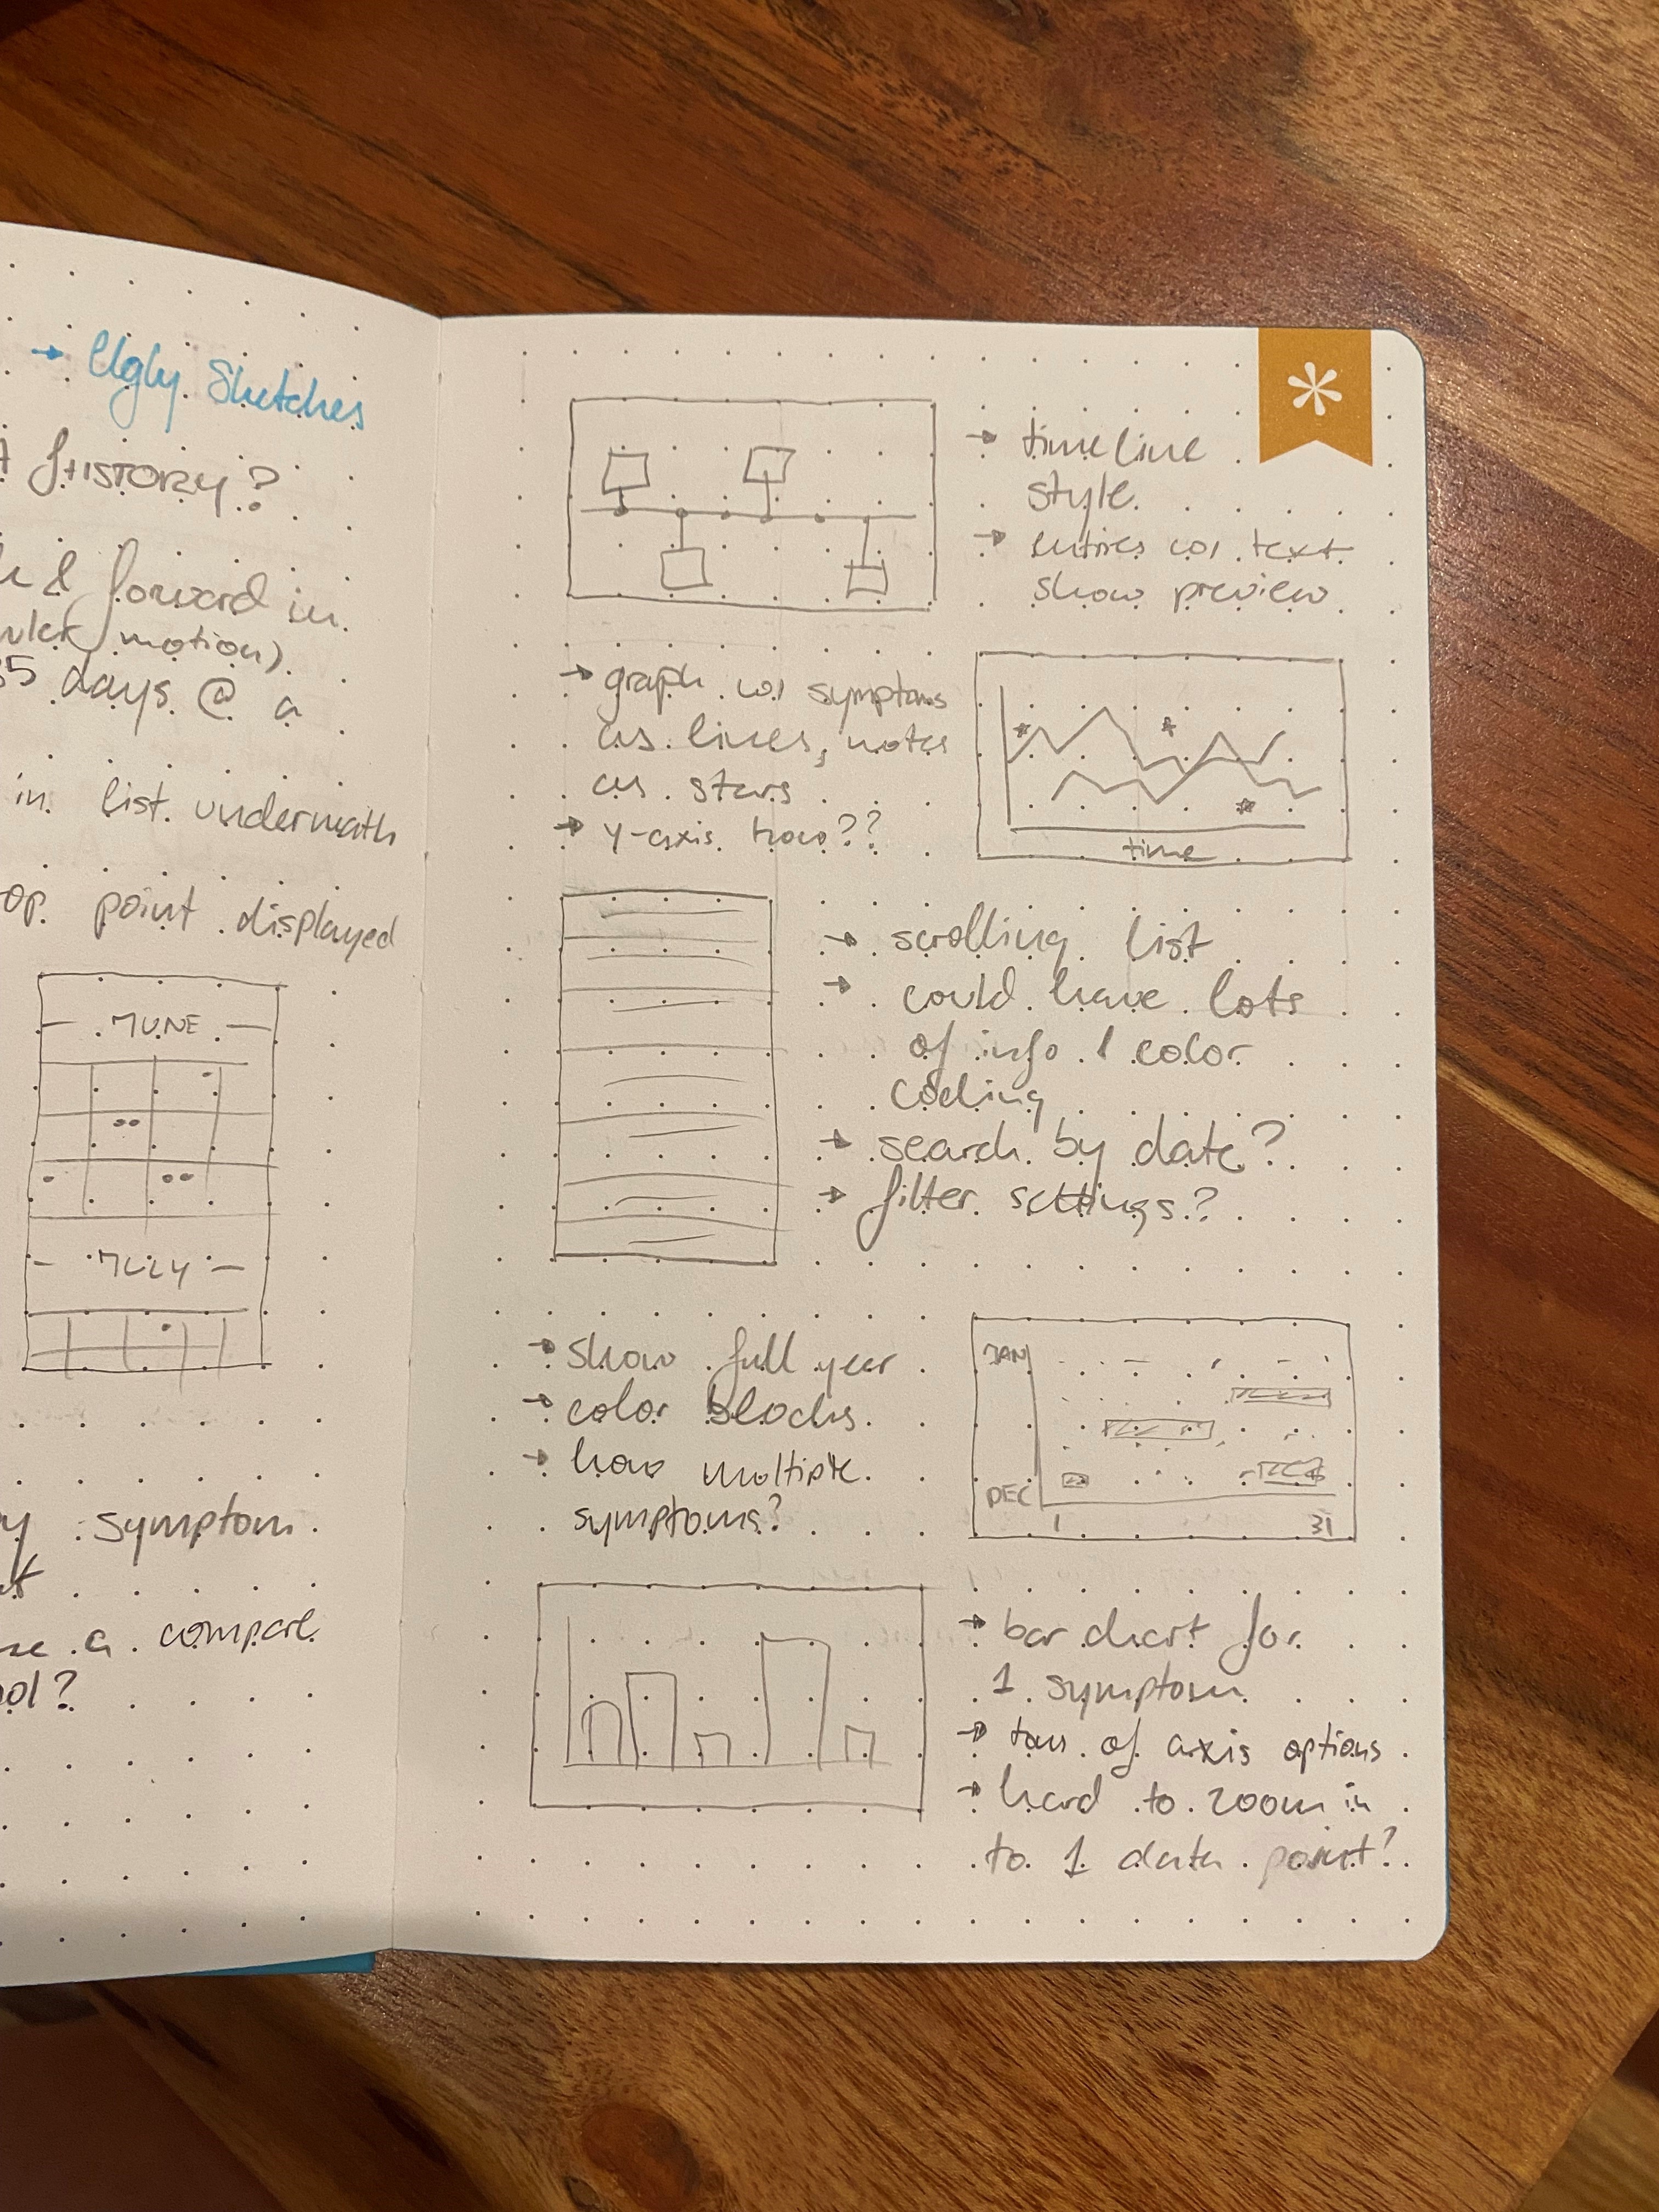 → Ugly Sketches
HISTORY?
& forward in
motion).
5 days @ a
in list underneath
point displayed
JUNE
JULY
symptom
a compare
→ timeline
style
→ entries w/ text
show preview
→ graph w/ symptoms
as lines, notes
as stars
→ y-axis how??
time
→ scrolling list
→ could have lots
of info / color
coding
→ search by date?
→ filter settings?
→ show full year
→ color blocks
→ how multiple
symptoms?
JAN
DEC
1 31
→ bar chart for
1 symptom
→ tons of axis options
→ hard to zoom in
to 1 data point?